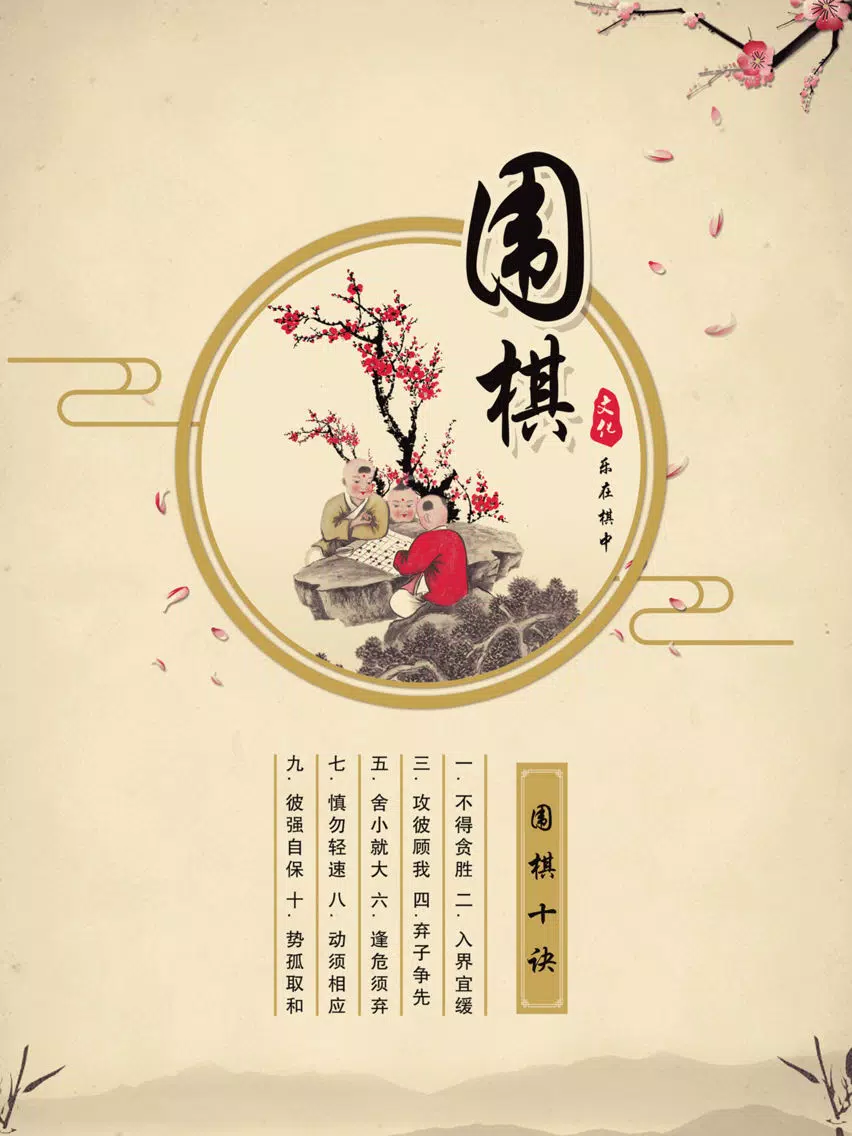 围棋
文化
乐在棋中
围棋十诀
一.不得贪胜 二.入界宜缓
三.攻彼顾我 四.弃子争先
五.舍小就大 六.逢危须弃
七.慎勿轻速 八.动须相应
九.彼强自保 十.势孤取和